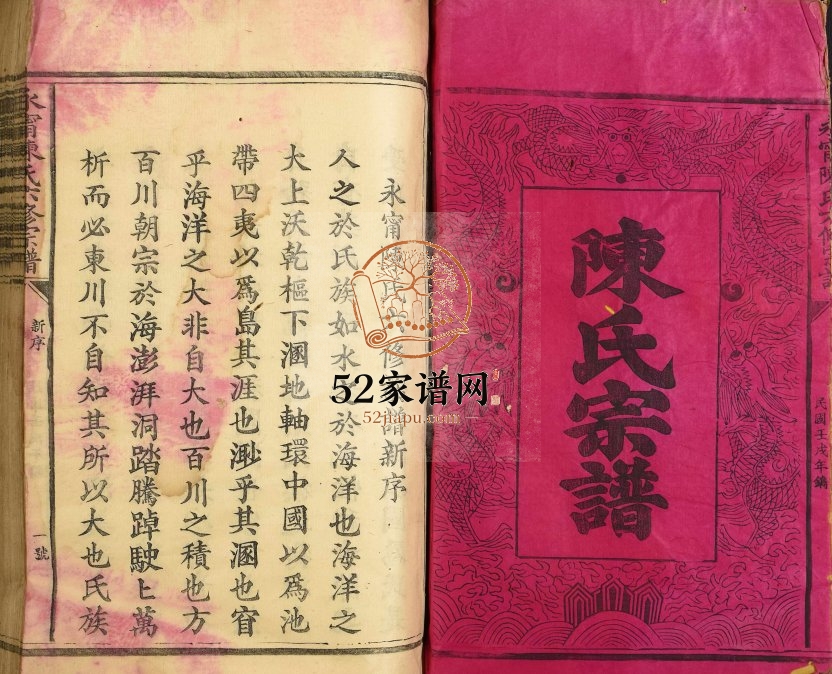 陳氏宗譜
民國壬戌年鐫
永甯陳氏六修譜新序
人之於氏族如水之於海洋也海洋之
大上沃乾樞下溷地軸環中國以爲池
帶四夷以爲島其涯也渺乎其溷也窅
乎海洋之大非自大也百川之積也方
百川朝宗於海澎湃洞踏騰踔駛匕萬
析而必東川不自知其所以大也氏族
永甯陳氏六修宗譜
新序
一號
52家谱网
52jiapu